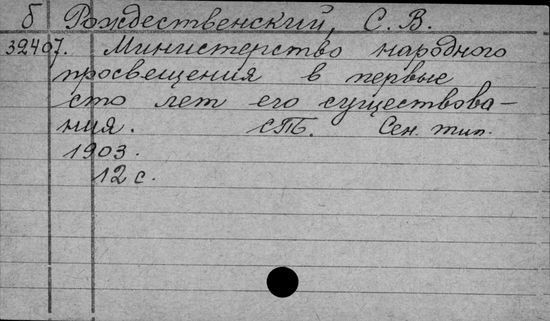 б Рождественский, С. В.
32407. Министерство народного
просвещения в первые
сто лет его существова-
ния. СПб. Сен. тип.
1903.
12 с.